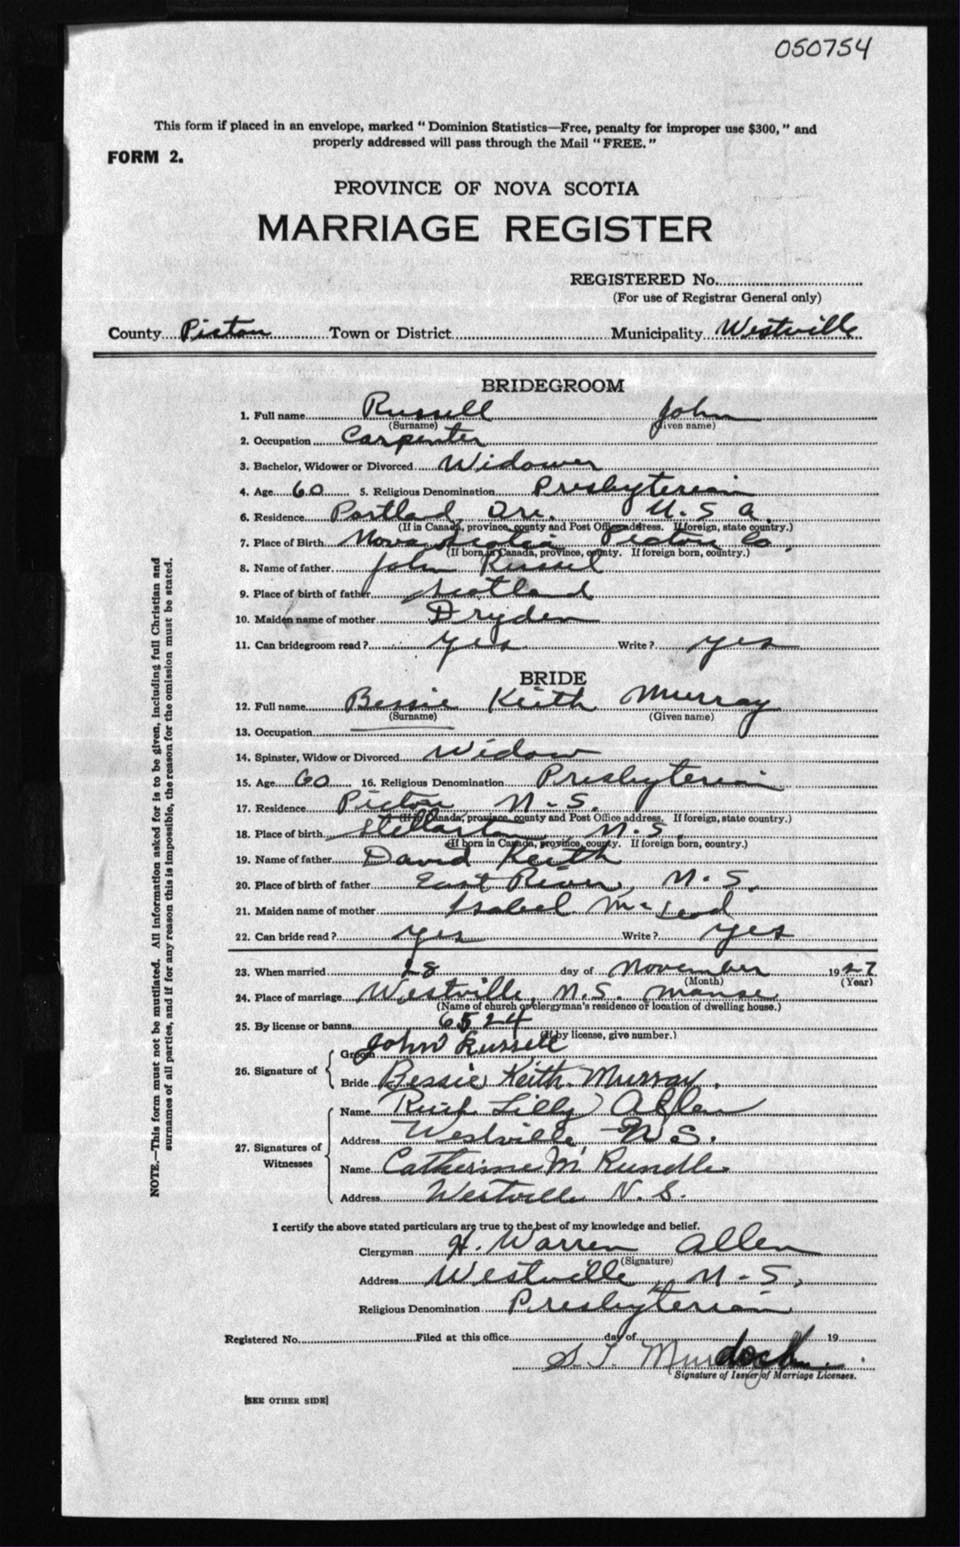 050754
This form if placed in an envelope, marked " Dominion Statistics—Free, penalty for improper use $300, " and
properly addressed will pass through the Mail " FREE. "
FORM 2.
PROVINCE OF NOVA SCOTIA
MARRIAGE REGISTER
REGISTERED No.
(For use of Registrar General only)
County Pictou Town or District Municipality Westville
BRIDEGROOM
1. Full name Russell John
(Surname) (Given name)
2. Occupation Carpenter
3. Bachelor, Widower or Divorced Widower
4. Age 60 5. Religious Denomination Presbyterian
6. Residence Portlad, Ore. U.S.A.
(If in Canada, province, county and Post Office address. If foreign, state country.)
7. Place of Birth Nova Scotia Pictou Co.
(If born in Canada, province, county. If foreign born, country.)
8. Name of father John Russel
9. Place of birth of father Scotland
10. Maiden name of mother Dryden
11. Can bridegroom read ? yes Write ? yes
BRIDE
12. Full name Bessie Keith Murray
(Surname) (Given name)
13. Occupation
14. Spinster, Widow or Divorced Widow
15. Age 60 16. Religious Denomination Presbyterian
17. Residence Pictou N.S.
(If in Canada, province, county and Post Office address. If foreign, state country.)
18. Place of birth Stellarton N.S.
(If born in Canada, province, county. If foreign born, country.)
19. Name of father David Keith
20. Place of birth of father East River, N.S.
21. Maiden name of mother Isabel McLeod
22. Can bride read ? yes Write ? yes
23. When married 28 day of November 1927
(Month) (Year)
24. Place of marriage Westville, N.S. manse
(Name of church or clergyman's residence or location of dwelling house.)
25. By license or banns 6524
(If by license, give number.)
26. Signature of
Groom John Russell
Bride Bessie Keith Murray.
27. Signatures of Witnesses
Name Ruth Lilly Allen
Address Westville N.S.
Name Catherine M Rundle
Address Westville N.S.
I certify the above stated particulars are true to the best of my knowledge and belief.
Clergyman H. Warren Allen
(Signature)
Address Westville, N.S.
Religious Denomination Presbyterian
Registered No. Filed at this office day of 19
S. T. Murdoch
Signature of Issuer of Marriage Licenses.
[SEE OTHER SIDE]
NOTE.—This form must not be mutilated. All information asked for is to be given, including full Christian and
surnames of all parties, and if for any reason this is impossible, the reason for the omission must be stated.